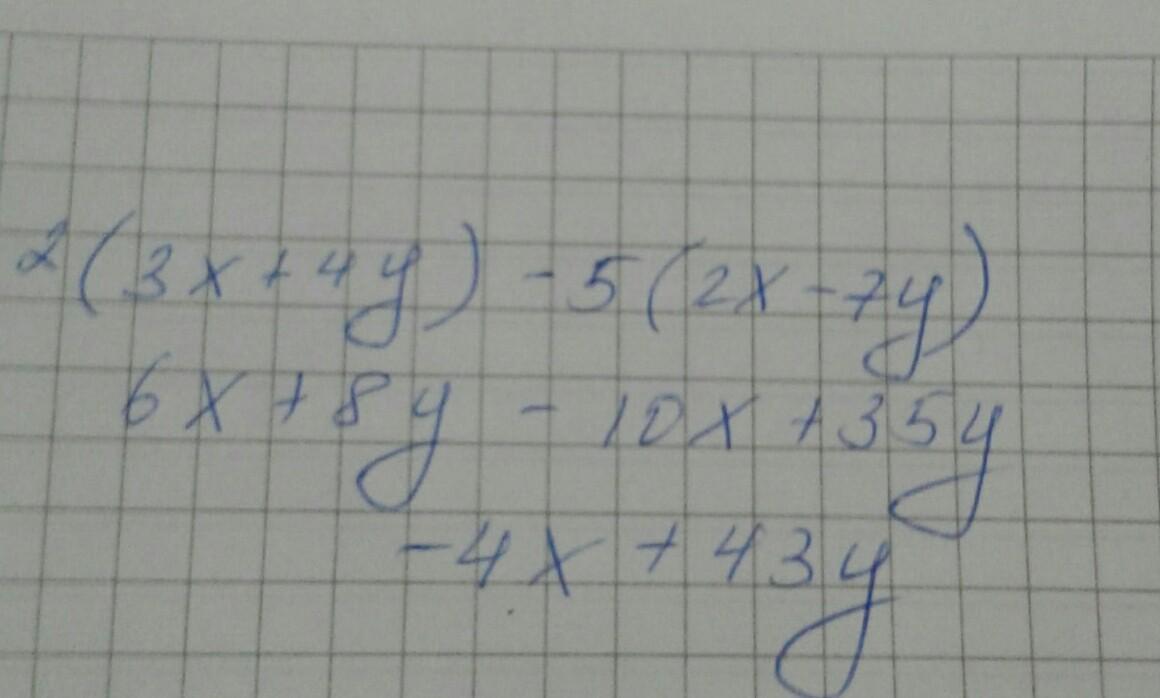 2(3x+4y)-5(2x-7y)
6x+8y-10x+35y
-4x+43y